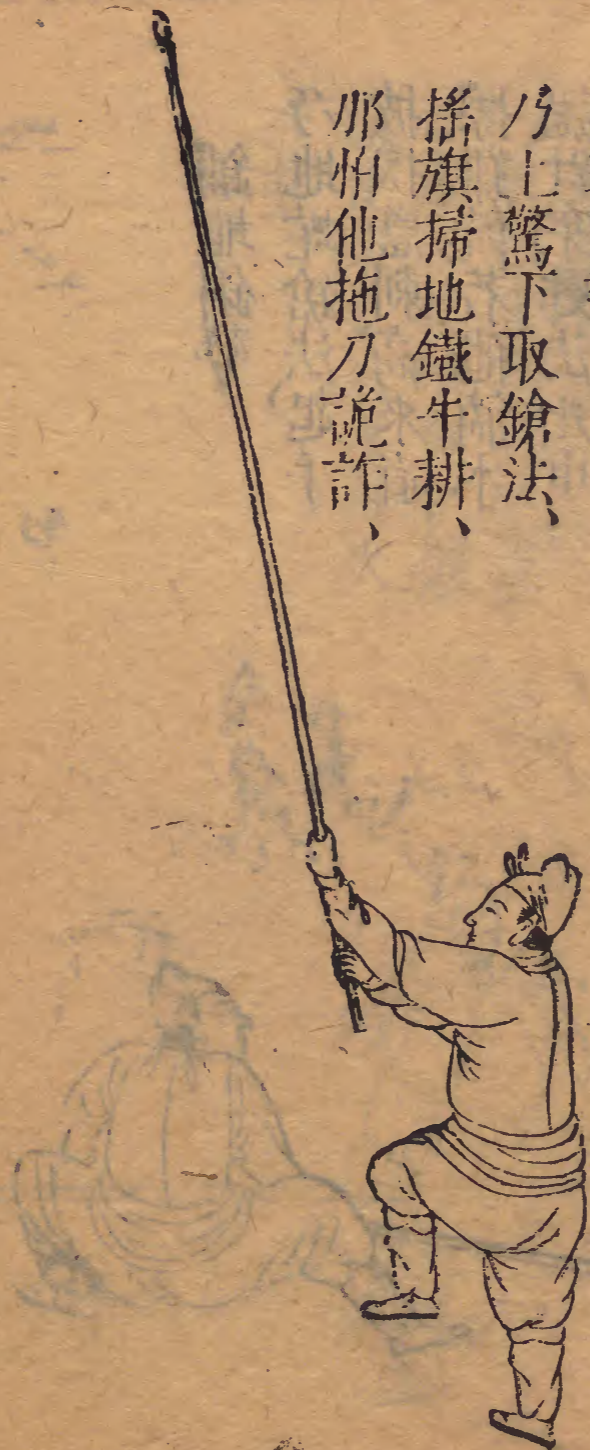 乃上驚下取鎗法、
搖旗掃地鐵牛耕、
那怕他拖刀詭詐、